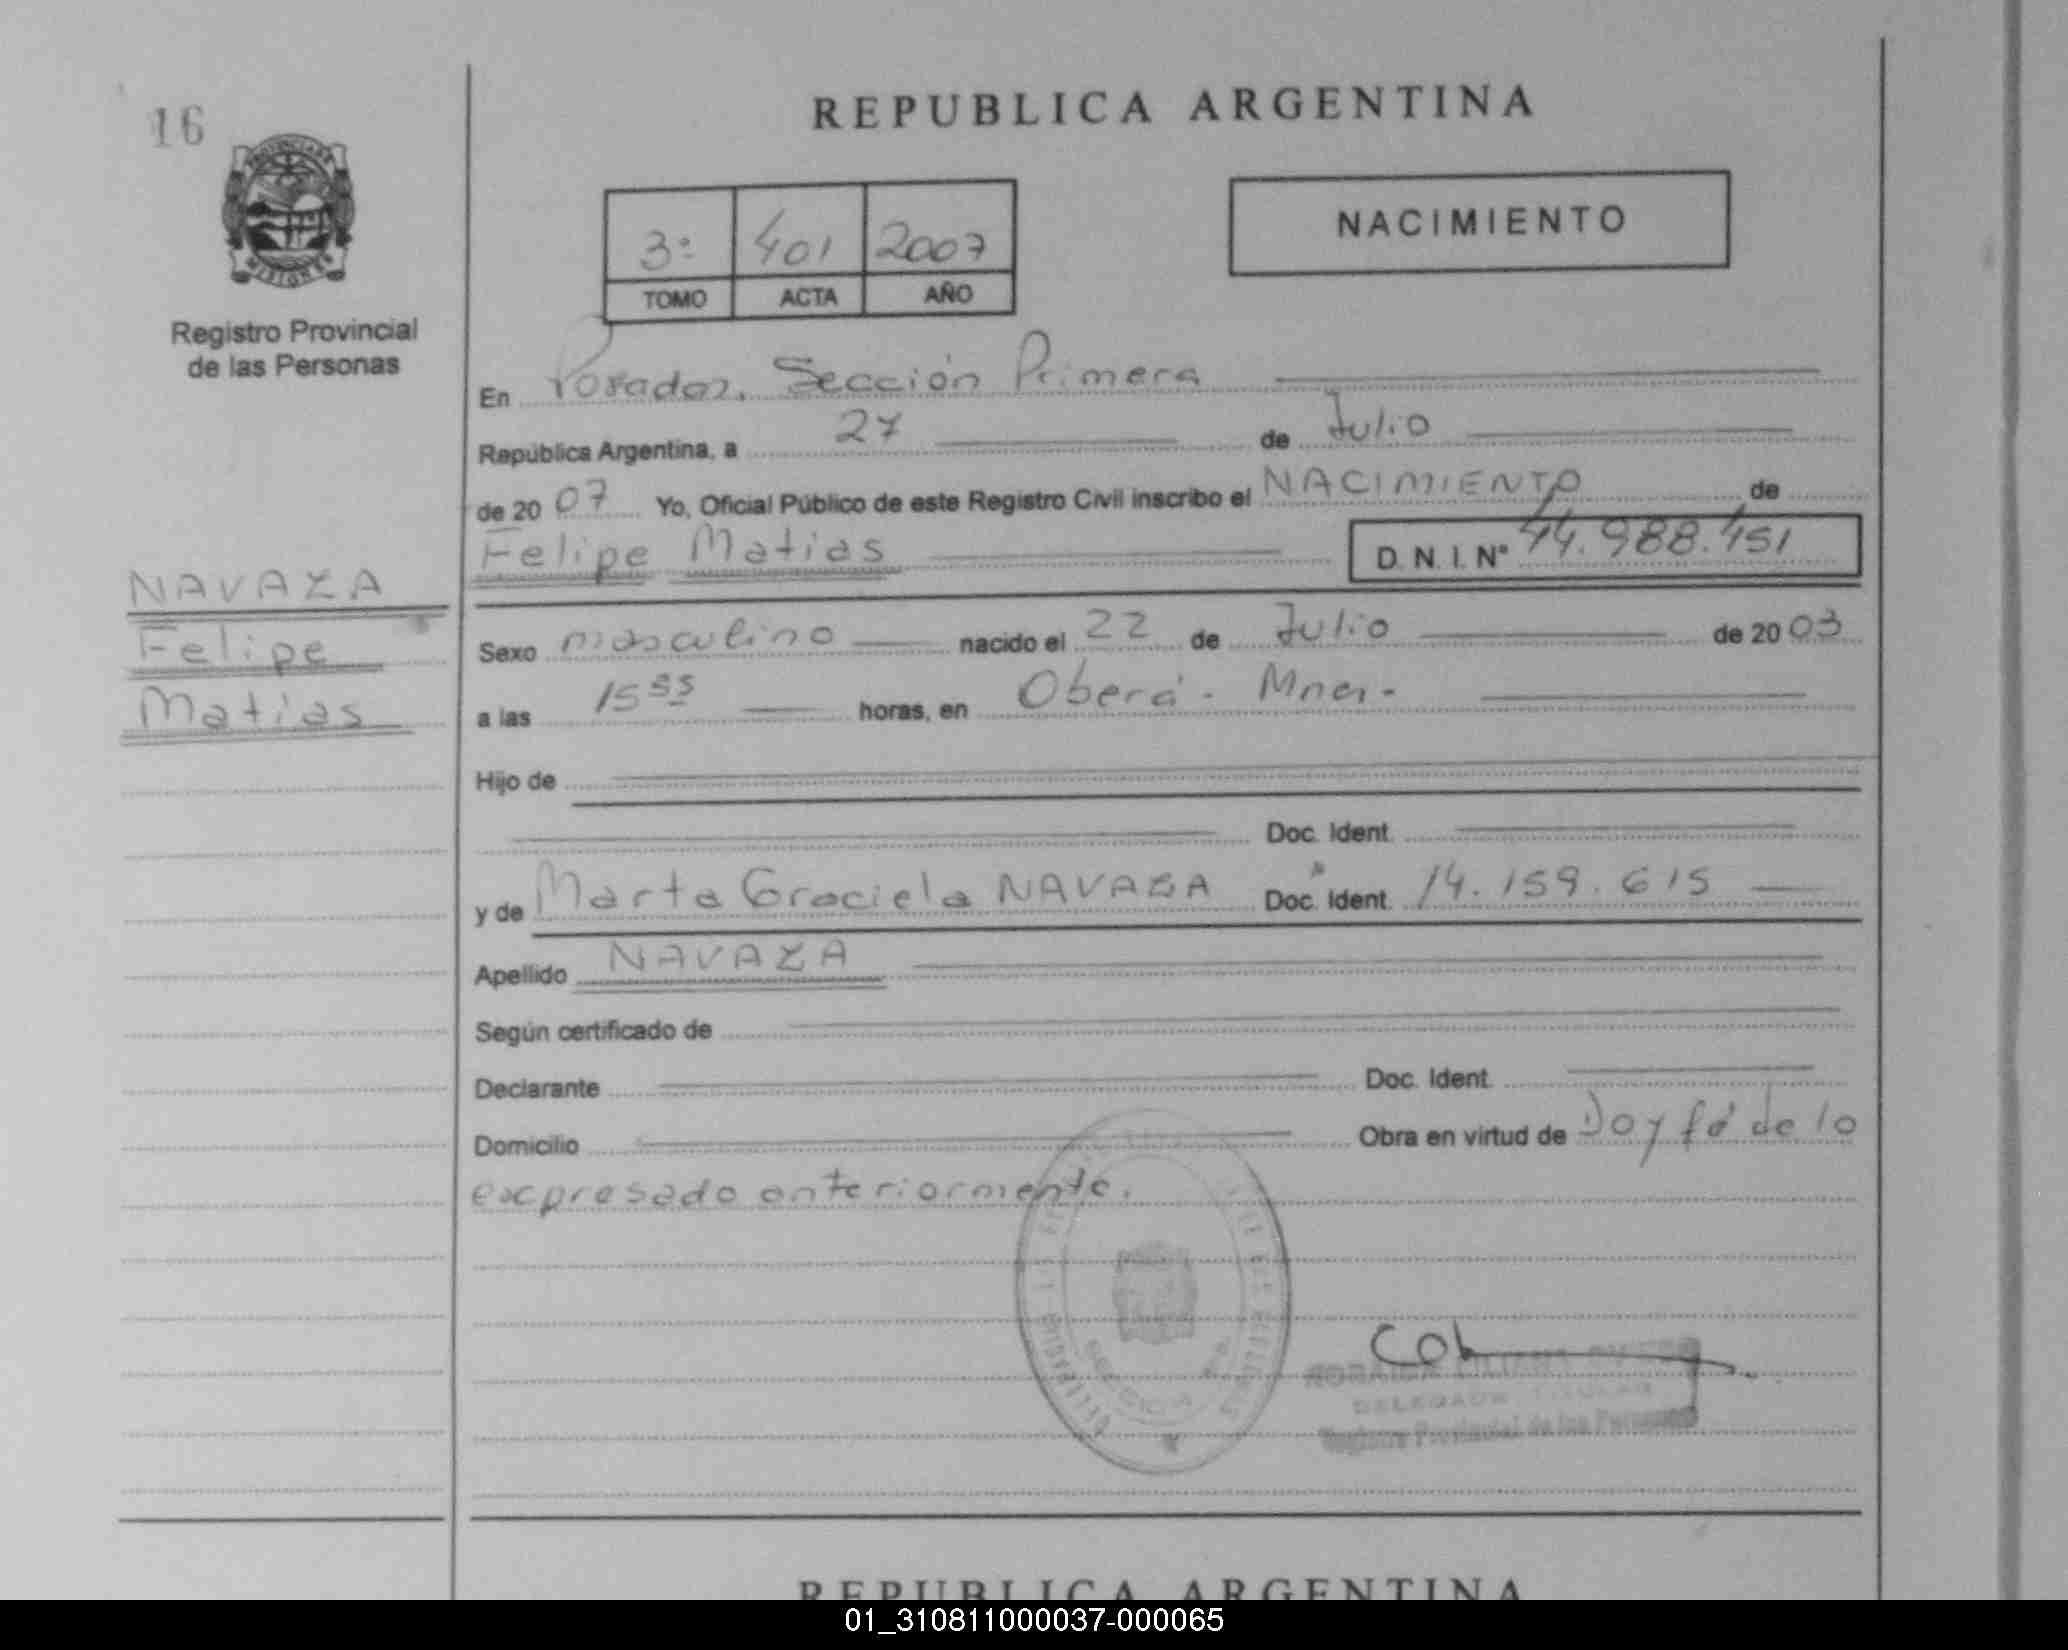 16
REPUBLICA ARGENTINA
PROVINCIA DE
MISIONES
3º 401 2007
TOMO ACTA AÑO
NACIMIENTO
Registro Provincial
de las Personas
En Posadas, Sección Primera
República Argentina, a 27 de Julio
de 2007 Yo, Oficial Público de este Registro Civil inscribo el NACIMIENTO de
Felipe Matias D. N. I. Nº 44.988.451
NAVAZA
Felipe
Matias
Sexo masculino nacido el 22 de Julio de 2003
a las 15 55 horas, en Oberá - Mnes -
Hijo de
Doc. Ident.
y de Marta Graciela NAVAZA Doc. Ident. 14.159.615
Apellido NAVAZA
Según certificado de
Declarante Doc. Ident.
Domicilio Obra en virtud de Doy fé de lo
expresado anteriormente.
DELEGADA TITULAR
Registro Provincial de las Personas
REPUBLICA ARGENTINA
01_310811000037-000065